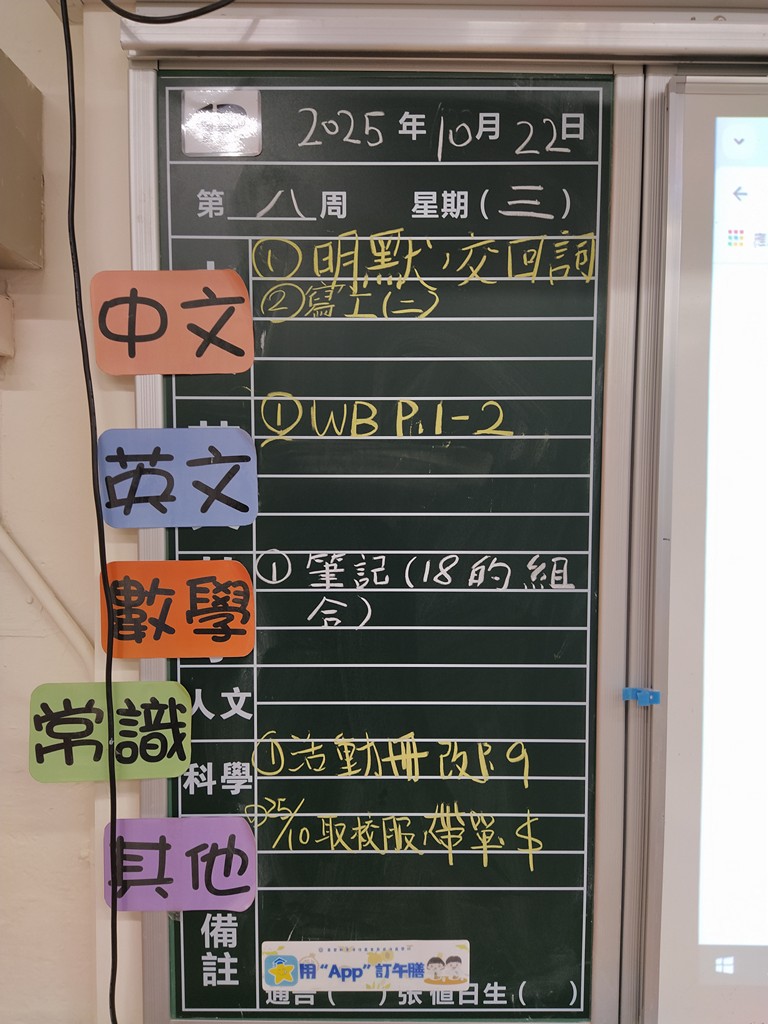 2025年10月22日
第八周 星期(三)
中文
① 明默,交回詞
② 寫工(二)
英文
① WB P.1-2
數學
① 筆記(18的組
合)
人文
常識
科學
① 活動冊改P.9
其他
25/10取校服/帶單$
備註
用“App”訂午膳
通告( )張 值日生( )